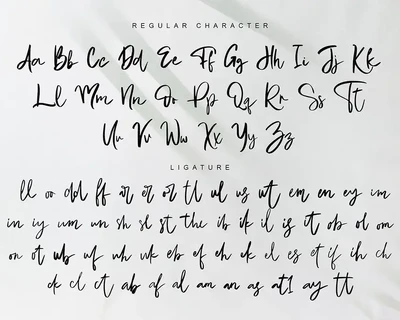 REGULAR CHARACTER
Aa Bb Cc Dd Ee Ff Gg Hh Ii Jj Kk
Ll Mm Nn Oo Pp Qq Rr Ss Tt
Uu Vv Ww Xx Yy Zz
LIGATURE
ll oo dd ff ar er or tl ul us ut em en ey im
in iy um un sh sl st the ib ik il is it ob ol om
on ot ub uf uh uk eb ef eh ek el es et if ih ch
ck cl ct ab af al am an as at1 ay tt